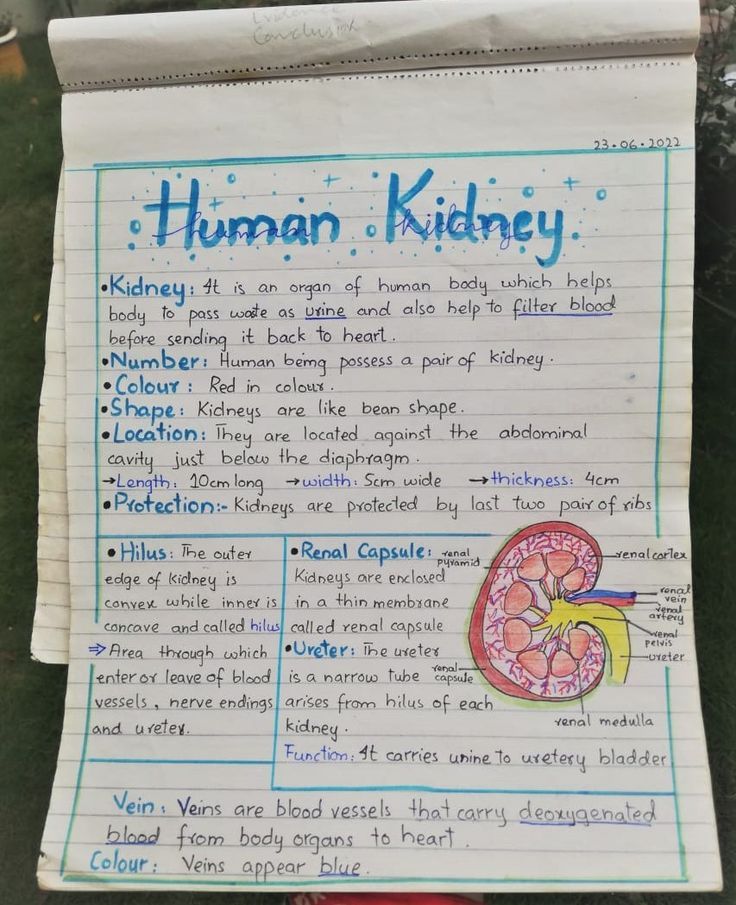 Evidence
Conclusion
23.06.2022
Human Kidney.
human kidney
•Kidney: It is an organ of human body which helps
body to pass waste as urine and also help to filter blood
before sending it back to heart.
•Number: Human being possess a pair of kidney.
•Colour: Red in colour.
•Shape: Kidneys are like bean shape.
•Location: They are located against the abdominal
cavity just below the diaphragm.
→Length: 10cm long →width: 5cm wide →thickness: 4cm
•Protection:- Kidneys are protected by last two pair of ribs
•Hilus: The outer
edge of kidney is
convex while inner is
concave and called hilus
⇒Area through which
enter or leave of blood
vessels, nerve endings
and ureter.
•Renal Capsule:
Kidneys are enclosed
in a thin membrane
called renal capsule
•Ureter: The ureter
is a narrow tube
arises from hilus of each
kidney.
Function: It carries urine to uretery bladder
renal
pyramid
renal cortex
renal
vein
renal
artery
renal
pelvis
ureter
renal
capsule
renal medulla
Vein: Veins are blood vessels that carry deoxygenated
blood from body organs to heart.
Colour: Veins appear blue.